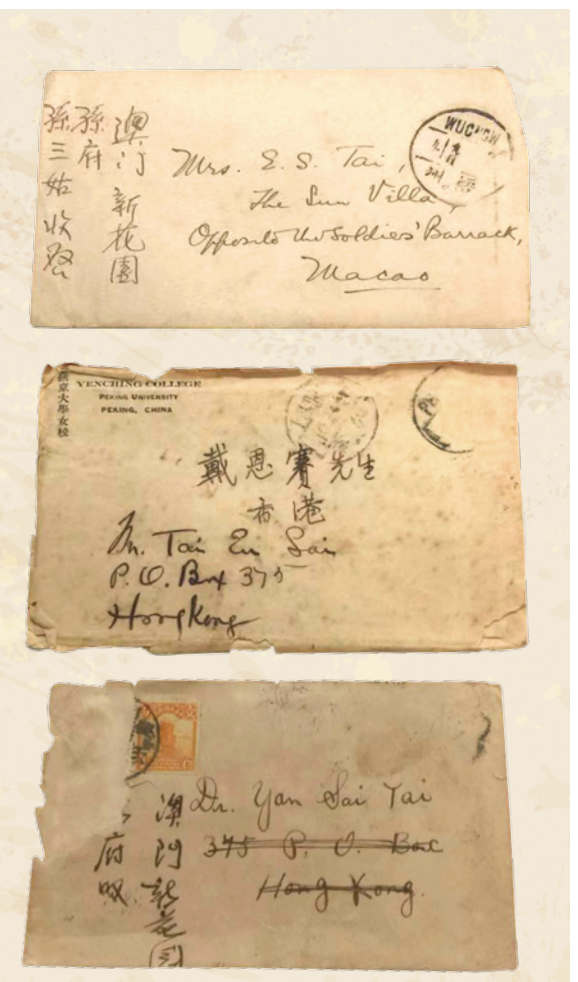 澳门新花園
孫府
孫三姑收啓
WUCHOW
Mrs. E. S. Tai,
The Sun Villa,
Opposite the Soldiers' Barrack,
Macao
燕京大學女校
YENCHING COLLEGE
PEKING UNIVERSITY
PEKING, CHINA
戴恩賽先生
香港
Mr. Tai En Sai
P. O. Box 375
HongKong
澳門新花園
府收
Dr. Yan Sai Tai
375 P. O. Box
Hong Kong.